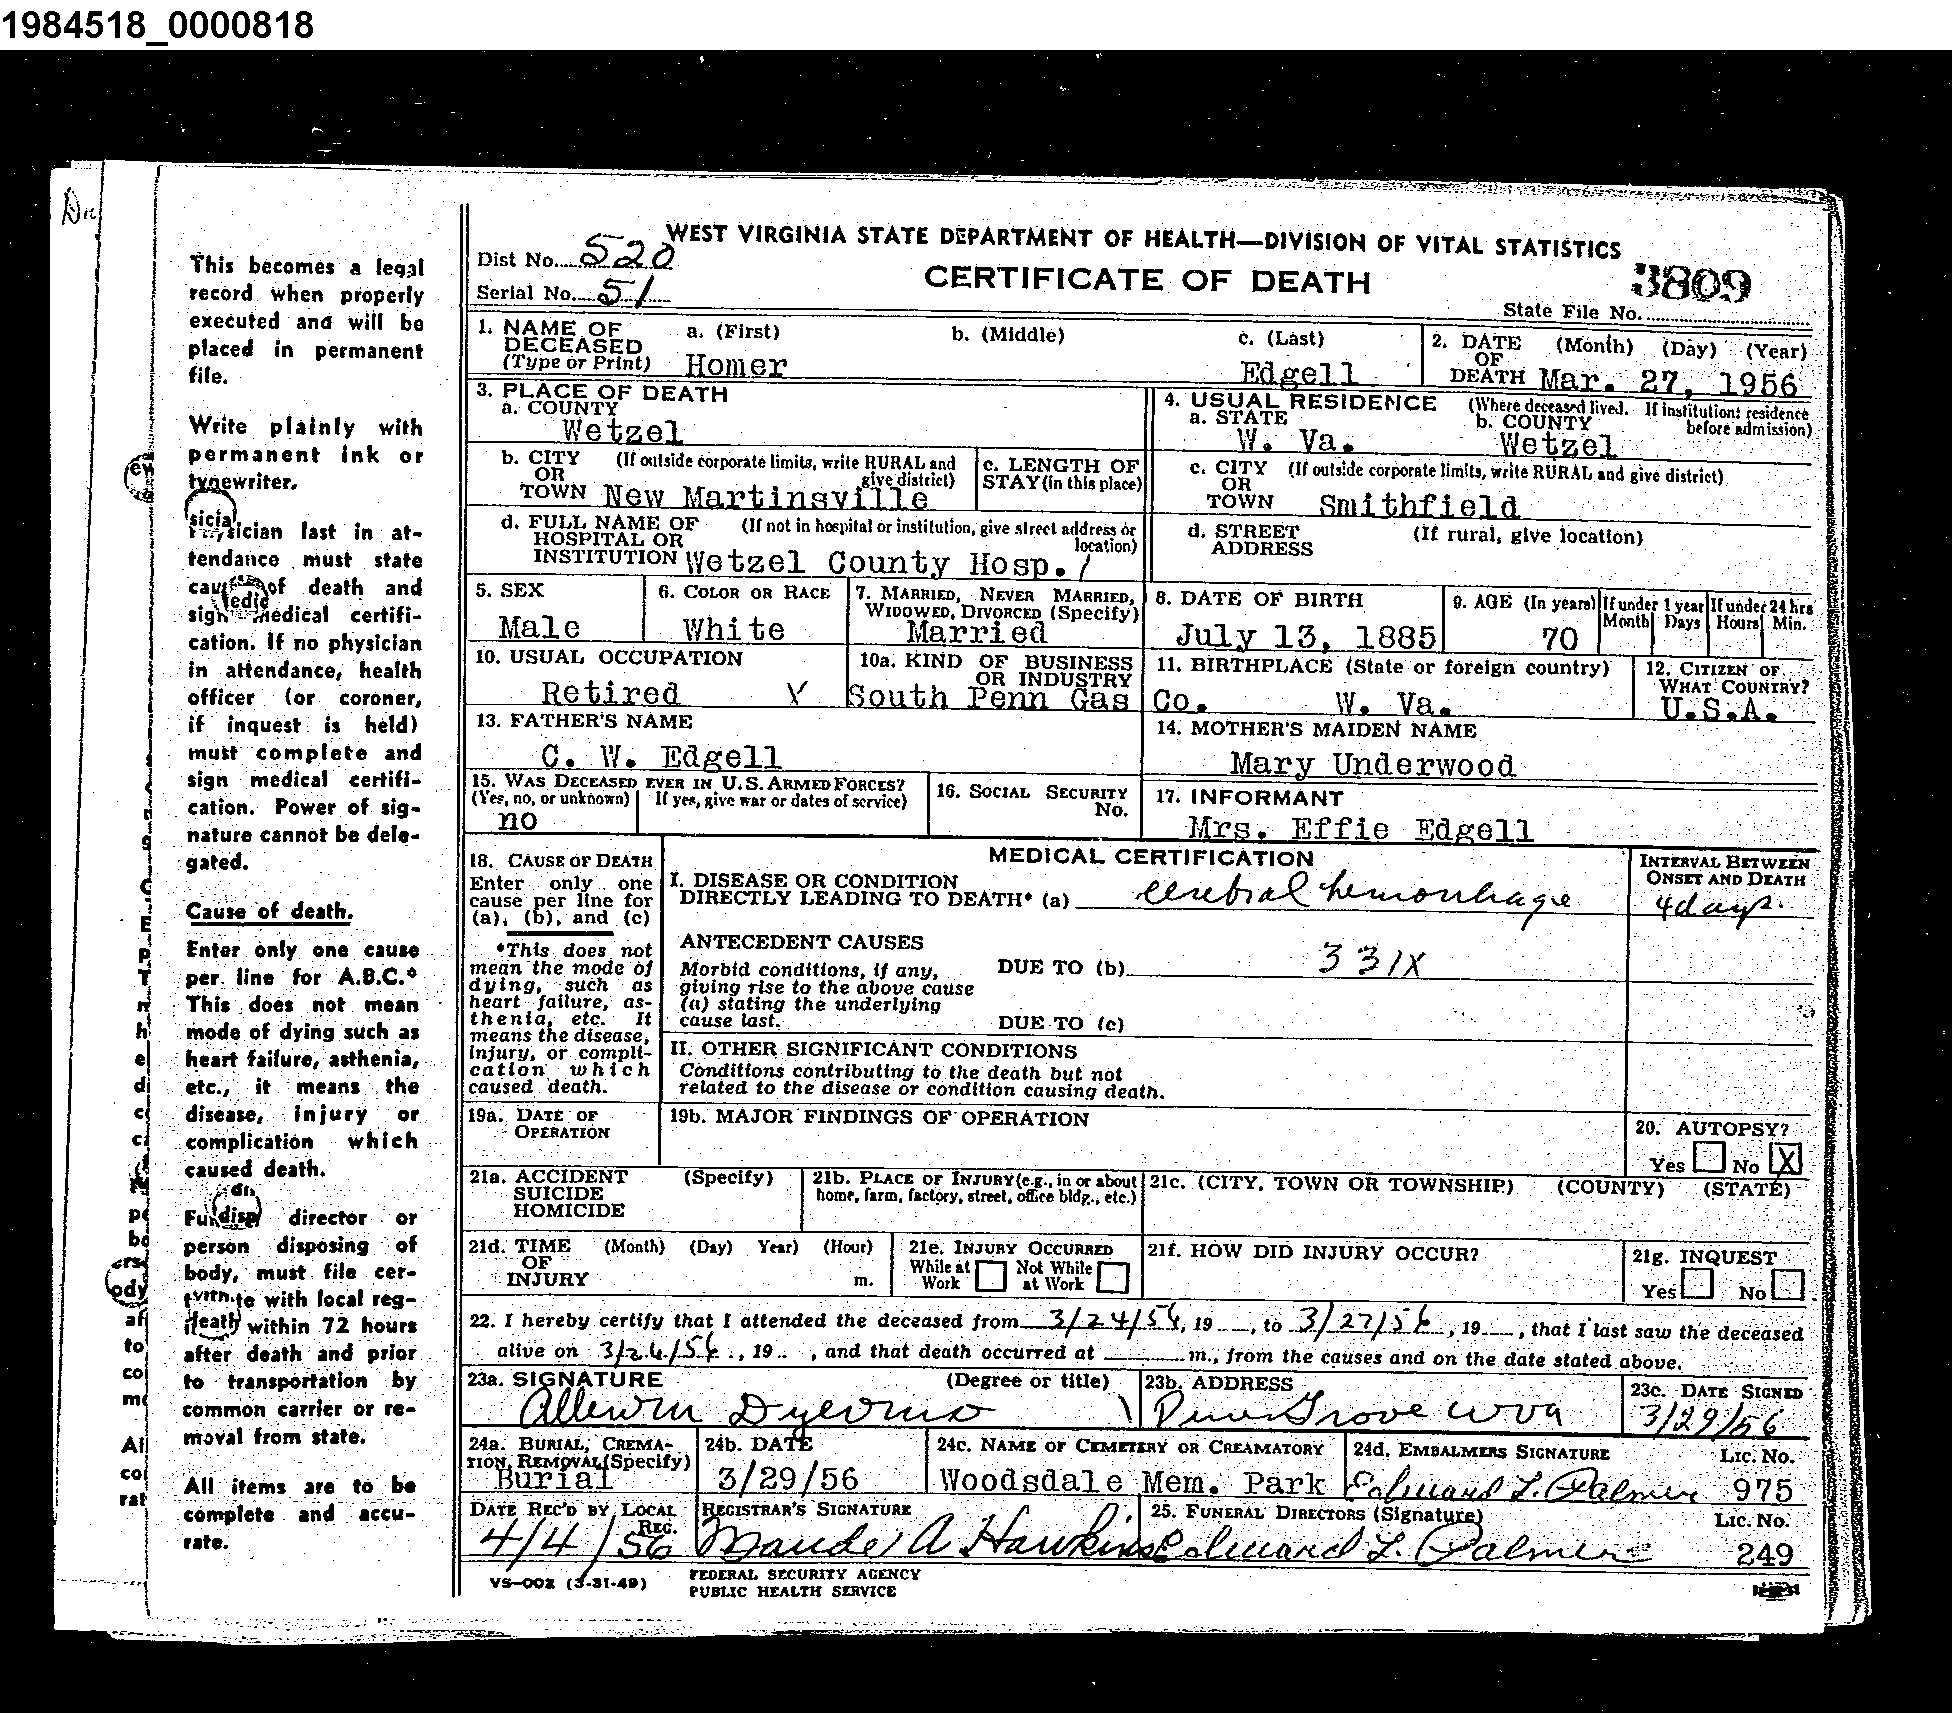 1984518_0000818
This becomes a legal
record when properly
executed and will be
placed in permanent
file.
Write plainly with
permanent ink or
typewriter.
Physician last in at-
tendance must state
cause of death and
sign medical certifi-
cation. If no physician
in attendance, health
officer (or coroner,
if inquest is held)
must complete and
sign medical certifi-
cation. Power of sig-
nature cannot be dele-
gated.
Cause of death.
Enter only one cause
per line for A.B.C.*
This does not mean
mode of dying such as
heart failure, asthenia,
etc., it means the
disease, injury or
complication which
caused death.
Funeral director or
person disposing of
body, must file cer-
with local reg-
within 72 hours
after death and prior
to transportation by
common carrier or re-
moval from state.
All items are to be
complete and accu-
rate.
WEST VIRGINIA STATE DEPARTMENT OF HEALTH—DIVISION OF VITAL STATISTICS
Dist No. 520
CERTIFICATE OF DEATH
3809
Serial No. 51
State File No.
1. NAME OF DECEASED (Type or Print) a. (First) b. (Middle) c. (Last)
Homer Edgell
2. DATE OF DEATH (Month) (Day) (Year)
Mar. 27, 1956
3. PLACE OF DEATH
a. COUNTY
Wetzel
4. USUAL RESIDENCE (Where deceased lived. If institution: residence before admission)
a. STATE b. COUNTY
W. Va. Wetzel
b. CITY OR TOWN (If outside corporate limits, write RURAL and give district)
New Martinsville
c. LENGTH OF STAY (in this place)
c. CITY OR TOWN (If outside corporate limits, write RURAL and give district)
Smithfield
d. FULL NAME OF HOSPITAL OR INSTITUTION (If not in hospital or institution, give street address or location)
Wetzel County Hosp. /
d. STREET ADDRESS (If rural, give location)
5. SEX
Male
6. COLOR OR RACE
White
7. MARRIED, NEVER MARRIED, WIDOWED, DIVORCED (Specify)
Married
8. DATE OF BIRTH
July 13, 1885
9. AGE (In years) If under 1 year Month Days If under 24 hrs Hours Min.
70
10. USUAL OCCUPATION
Retired
10a. KIND OF BUSINESS OR INDUSTRY
South Penn Gas Co.
11. BIRTHPLACE (State or foreign country)
W. Va.
12. CITIZEN OF WHAT COUNTRY?
U.S.A.
13. FATHER'S NAME
C. W. Edgell
14. MOTHER'S MAIDEN NAME
Mary Underwood
15. WAS DECEASED EVER IN U.S. ARMED FORCES?
(Yes, no, or unknown) If yes, give war or dates of service)
no
16. SOCIAL SECURITY No.
17. INFORMANT
Mrs. Effie Edgell
18. CAUSE OF DEATH
Enter only one
cause per line for
(a), (b), and (c)
*This does not
mean the mode of
dying, such as
heart failure, as-
thenia, etc. It
means the disease,
injury, or compli-
cation which
caused death.
MEDICAL CERTIFICATION
INTERVAL BETWEEN ONSET AND DEATH
I. DISEASE OR CONDITION
DIRECTLY LEADING TO DEATH* (a) cerebral hemorrhage 4 days.
ANTECEDENT CAUSES
Morbid conditions, if any,
giving rise to the above cause
(a) stating the underlying
cause last.
DUE TO (b) 331X
DUE TO (c)
II. OTHER SIGNIFICANT CONDITIONS
Conditions contributing to the death but not
related to the disease or condition causing death.
19a. DATE OF OPERATION
19b. MAJOR FINDINGS OF OPERATION
20. AUTOPSY?
Yes No X
21a. ACCIDENT SUICIDE HOMICIDE (Specify)
21b. PLACE OF INJURY (e.g., in or about home, farm, factory, street, office bldg., etc.)
21c. (CITY, TOWN OR TOWNSHIP) (COUNTY) (STATE)
21d. TIME OF INJURY (Month) (Day) Year) (Hour) m.
21e. INJURY OCCURRED
While at Work Not While at Work
21f. HOW DID INJURY OCCUR?
21g. INQUEST
Yes No
22. I hereby certify that I attended the deceased from 3/24/56, 19__, to 3/27/56, 19__, that I last saw the deceased
alive on 3/26/56, 19.. , and that death occurred at ____m., from the causes and on the date stated above.
23a. SIGNATURE (Degree or title)
23b. ADDRESS
Pine Grove W Va
23c. DATE SIGNED
3/29/56
24a. BURIAL, CREMA-
TION, REMOVAL (Specify)
Burial
24b. DATE
3/29/56
24c. NAME OF CEMETERY OR CREAMATORY
Woodsdale Mem. Park
24d. EMBALMERS SIGNATURE Lic. No.
Edward L. Palmer 975
DATE REC'D BY LOCAL REG.
4/4/56
REGISTRAR'S SIGNATURE
Maude A Hawkins
25. FUNERAL DIRECTORS (Signature) Lic. No.
Edward L. Palmer 249
VS-002 (3-31-49)
FEDERAL SECURITY AGENCY
PUBLIC HEALTH SERVICE